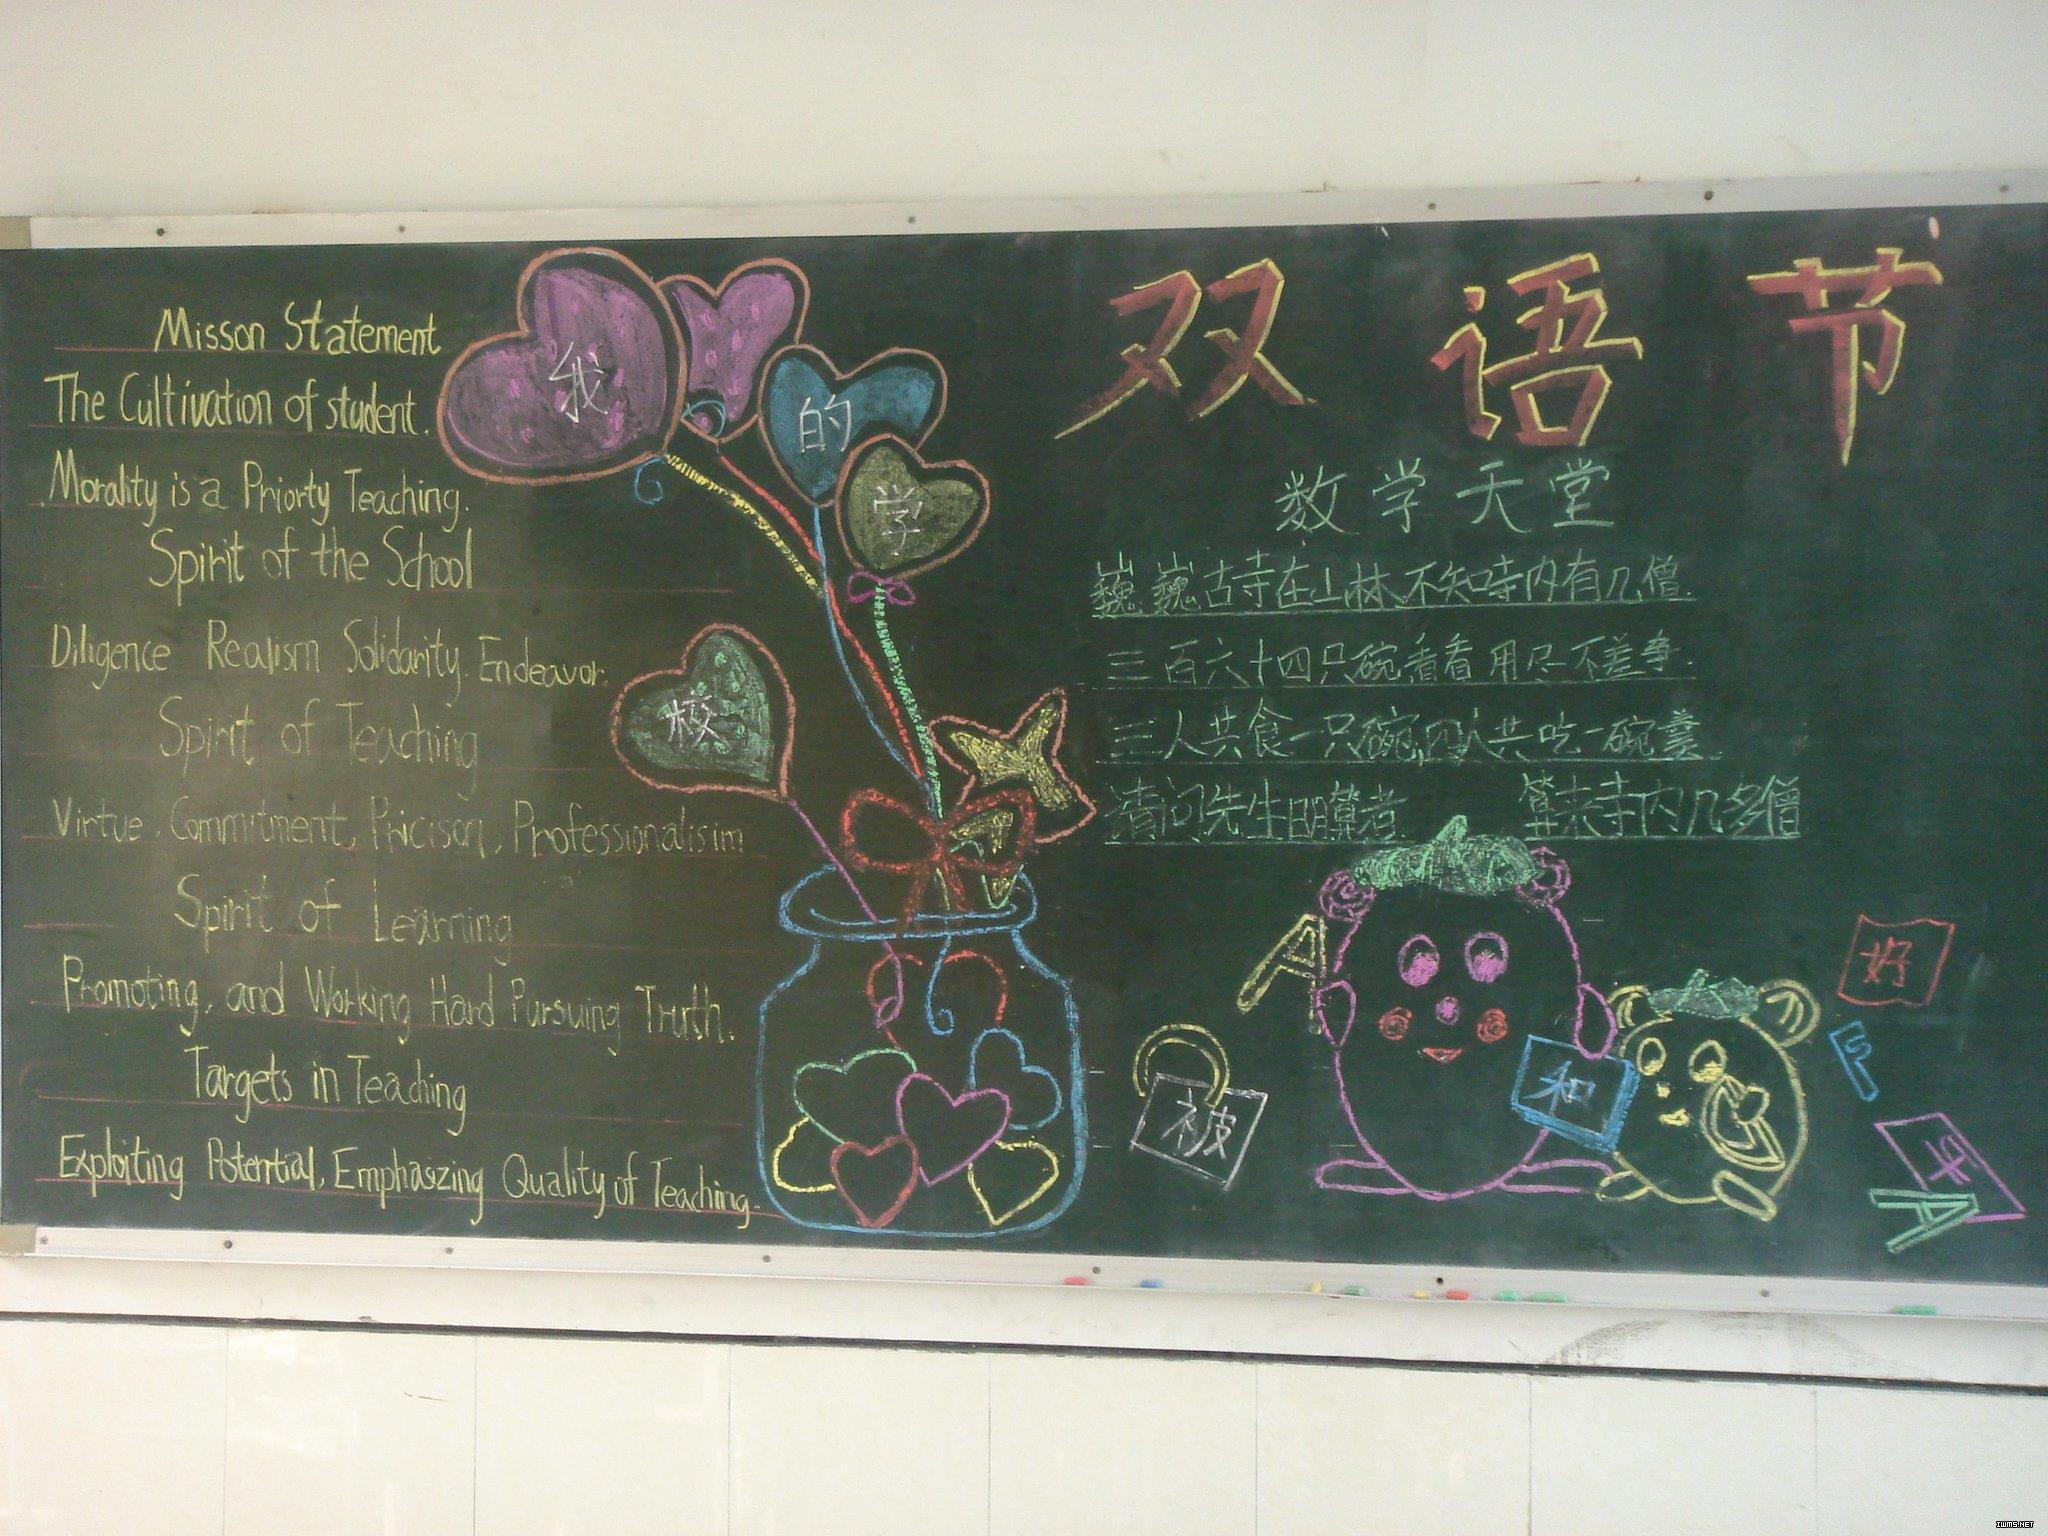 Misson Statement
The Cultivation of student.
Morality is a Priorty Teaching.
Spirit of the School
Diligence Realism Solidarity. Endeavor.
Spirit of Teaching
Virtue, Commitment, Pricison, Professionalisim
Spirit of Learning
Promoting, and Working Hard Pursuing Truth.
Targets in Teaching
Exploiting Potential, Emphasizing Quality of Teaching.
我
的
学
校
双语节
数学天堂
巍巍古寺在山林,不知寺内有几僧.
三百六十四只碗,看看用尽不差争.
三人共食一只碗,四人共吃一碗羹.
请问先生明算者 算来寺内几多僧
A
被
和
好
F
平
A
IWMS.NET